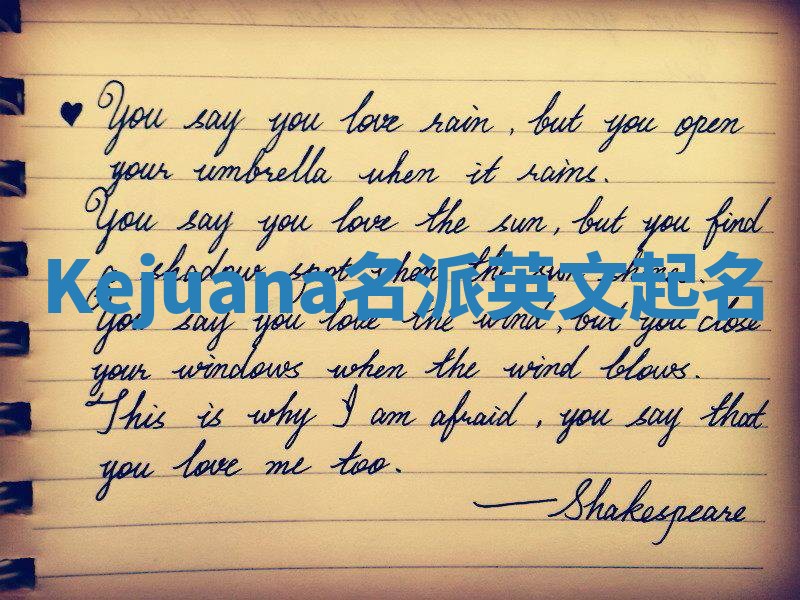 ♥ You say you love rain, but you open
your umbrella when it rains.
You say you love the sun, but you find
a shadow spot when the sun shine.
Kejuana名派英文起名
You say you love the wind, but you close
your windows when the wind blows.
This is why I am afraid, you say that
you love me too.
—Shakespeare